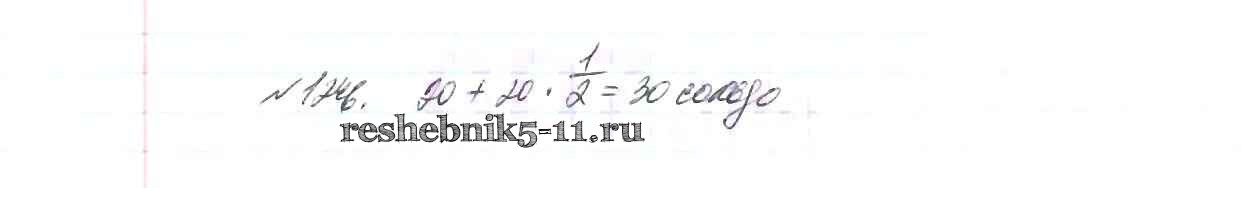 №1246. 20 + 20 · 1/2 = 30 сольдо
reshebnik5-11.ru